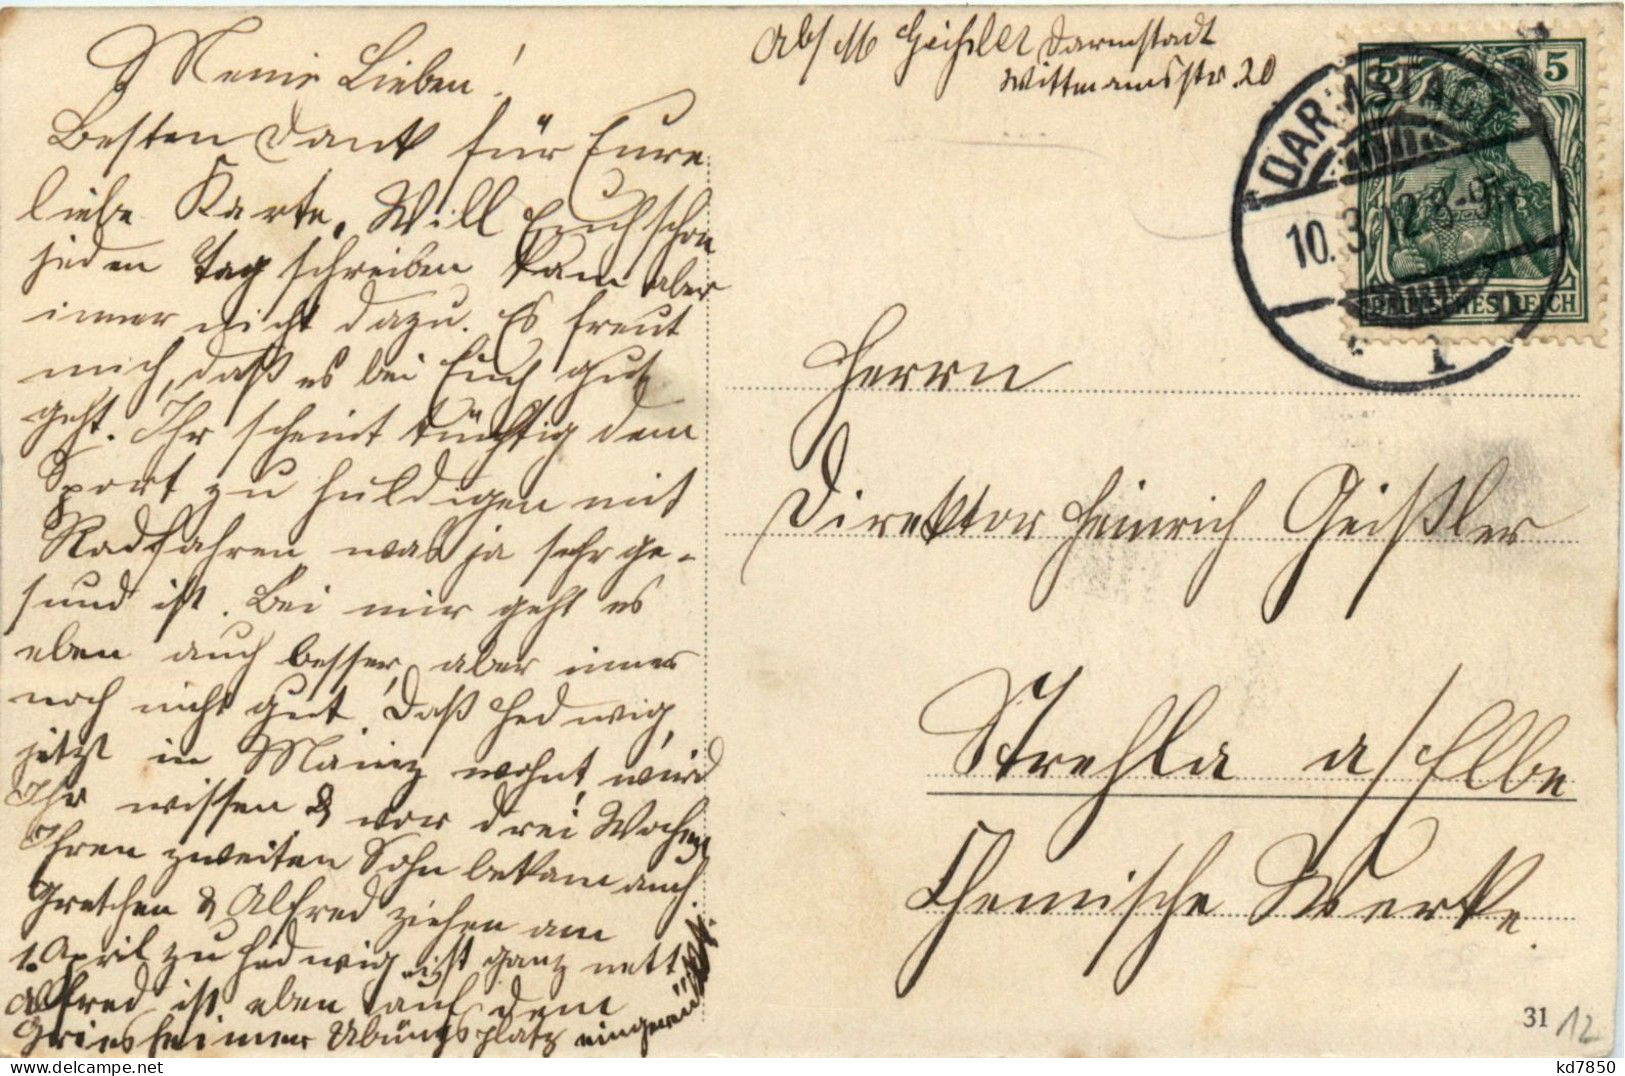 Meine Lieben!
Besten Dank für Eure
liebe Karte. Will Euch schon
jeden Tag schreiben kam aber
immer nicht dazu. Es freut
mich, daß es bei Euch gut
geht. Ihr scheint tüchtig dem
Sport zu huldigen mit
Radfahren was ja sehr ge-
sund ist. Bei mir geht es
eben auch besser, aber immer
noch nicht gut. Daß Hedwig,
jetzt in Mainz wohnt, wird
Ihr wissen & vor drei Wochen
Ihren zweiten Sohn bekam auch.
Gretchen & Alfred ziehen am
1. April zu Hedwig, ist ganz nett
Alfred ist eben auf dem
Griesheimer Übungsplatz eingerückt.
Abs/ M Geißler Darmstadt
Wittmannstr. 20
DARMSTADT
10.3.12.8-9
1
5 5
DEUTSCHES REICH
Herrn
Direktor Heinrich Geißler
Strehla a/Elbe
Chemische Werke.
31
12
kd7850